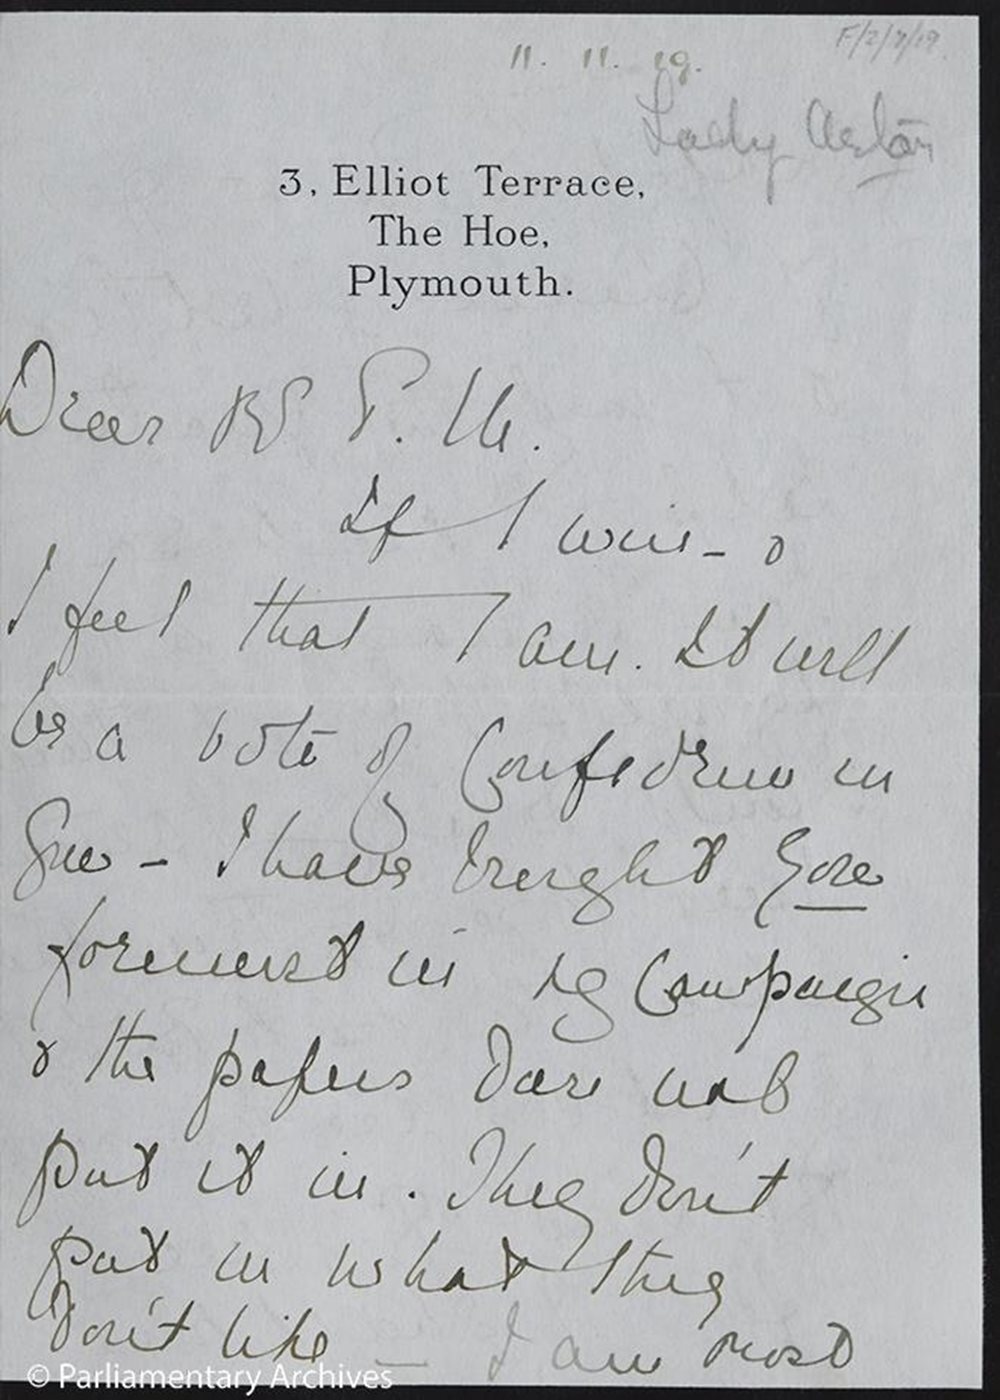 F/2/7/19
11. 11. 19.
Lady Astor
3, Elliot Terrace,
The Hoe,
Plymouth.
Dear P.M.
If I win – &
I feel that I am. It will
be a vote of Confidence in
you – I have brought you
foremost in my Campaign
& the papers dare not
put it in. They don't
put in what they
don't like – I am most
© Parliamentary Archives